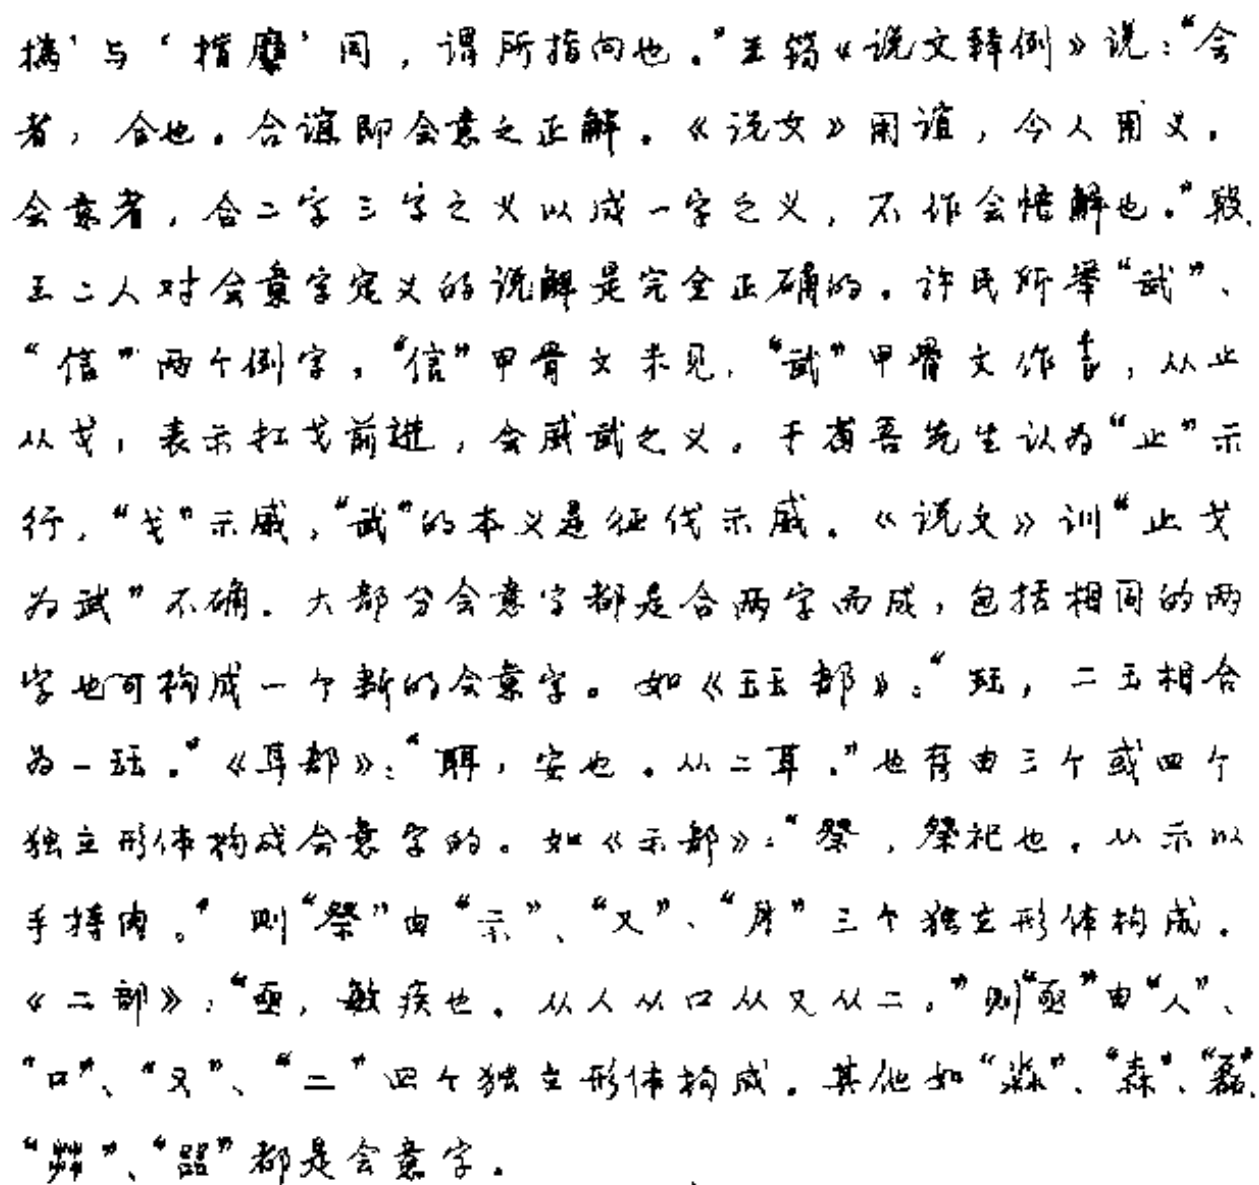 㧑’与‘指麾’同，谓所指向也。”王筠《说文释例》说：“会
者，合也。合谊即会意之正解。《说文》用谊，今人用义。
会意者，合二字三字之义以成一字之义，不作会悟解也。”段、
王二人对会意字定义的说解是完全正确的。许氏所举“武”、
“信”两个例字，“信”甲骨文未见，“武”甲骨文作，从止
从戈，表示扛戈前进，会威武之义。于省吾先生认为“止”示
行，“戈”示威，“武”的本义是征伐示威。《说文》训“止戈
为武”不确。大部分会意字都是合两字而成，包括相同的两
字也可构成一个新的会意字。如《玨部》：“玨，二玉相合
为一玨。”《耳部》：“聑，安也。从二耳。”也有由三个或四个
独立形体构成会意字的。如《示部》：“祭，祭祀也。从示以
手持肉。”则“祭”由“示”、“又”、“月”三个独立形体构成。
《二部》：“亟，敏疾也。从人从口从又从二。”则“亟”由“人”、
“口”、“又”、“二”四个独立形体构成。其他如“淼”、“森”、“磊”、
“茻”、“㗊”都是会意字。